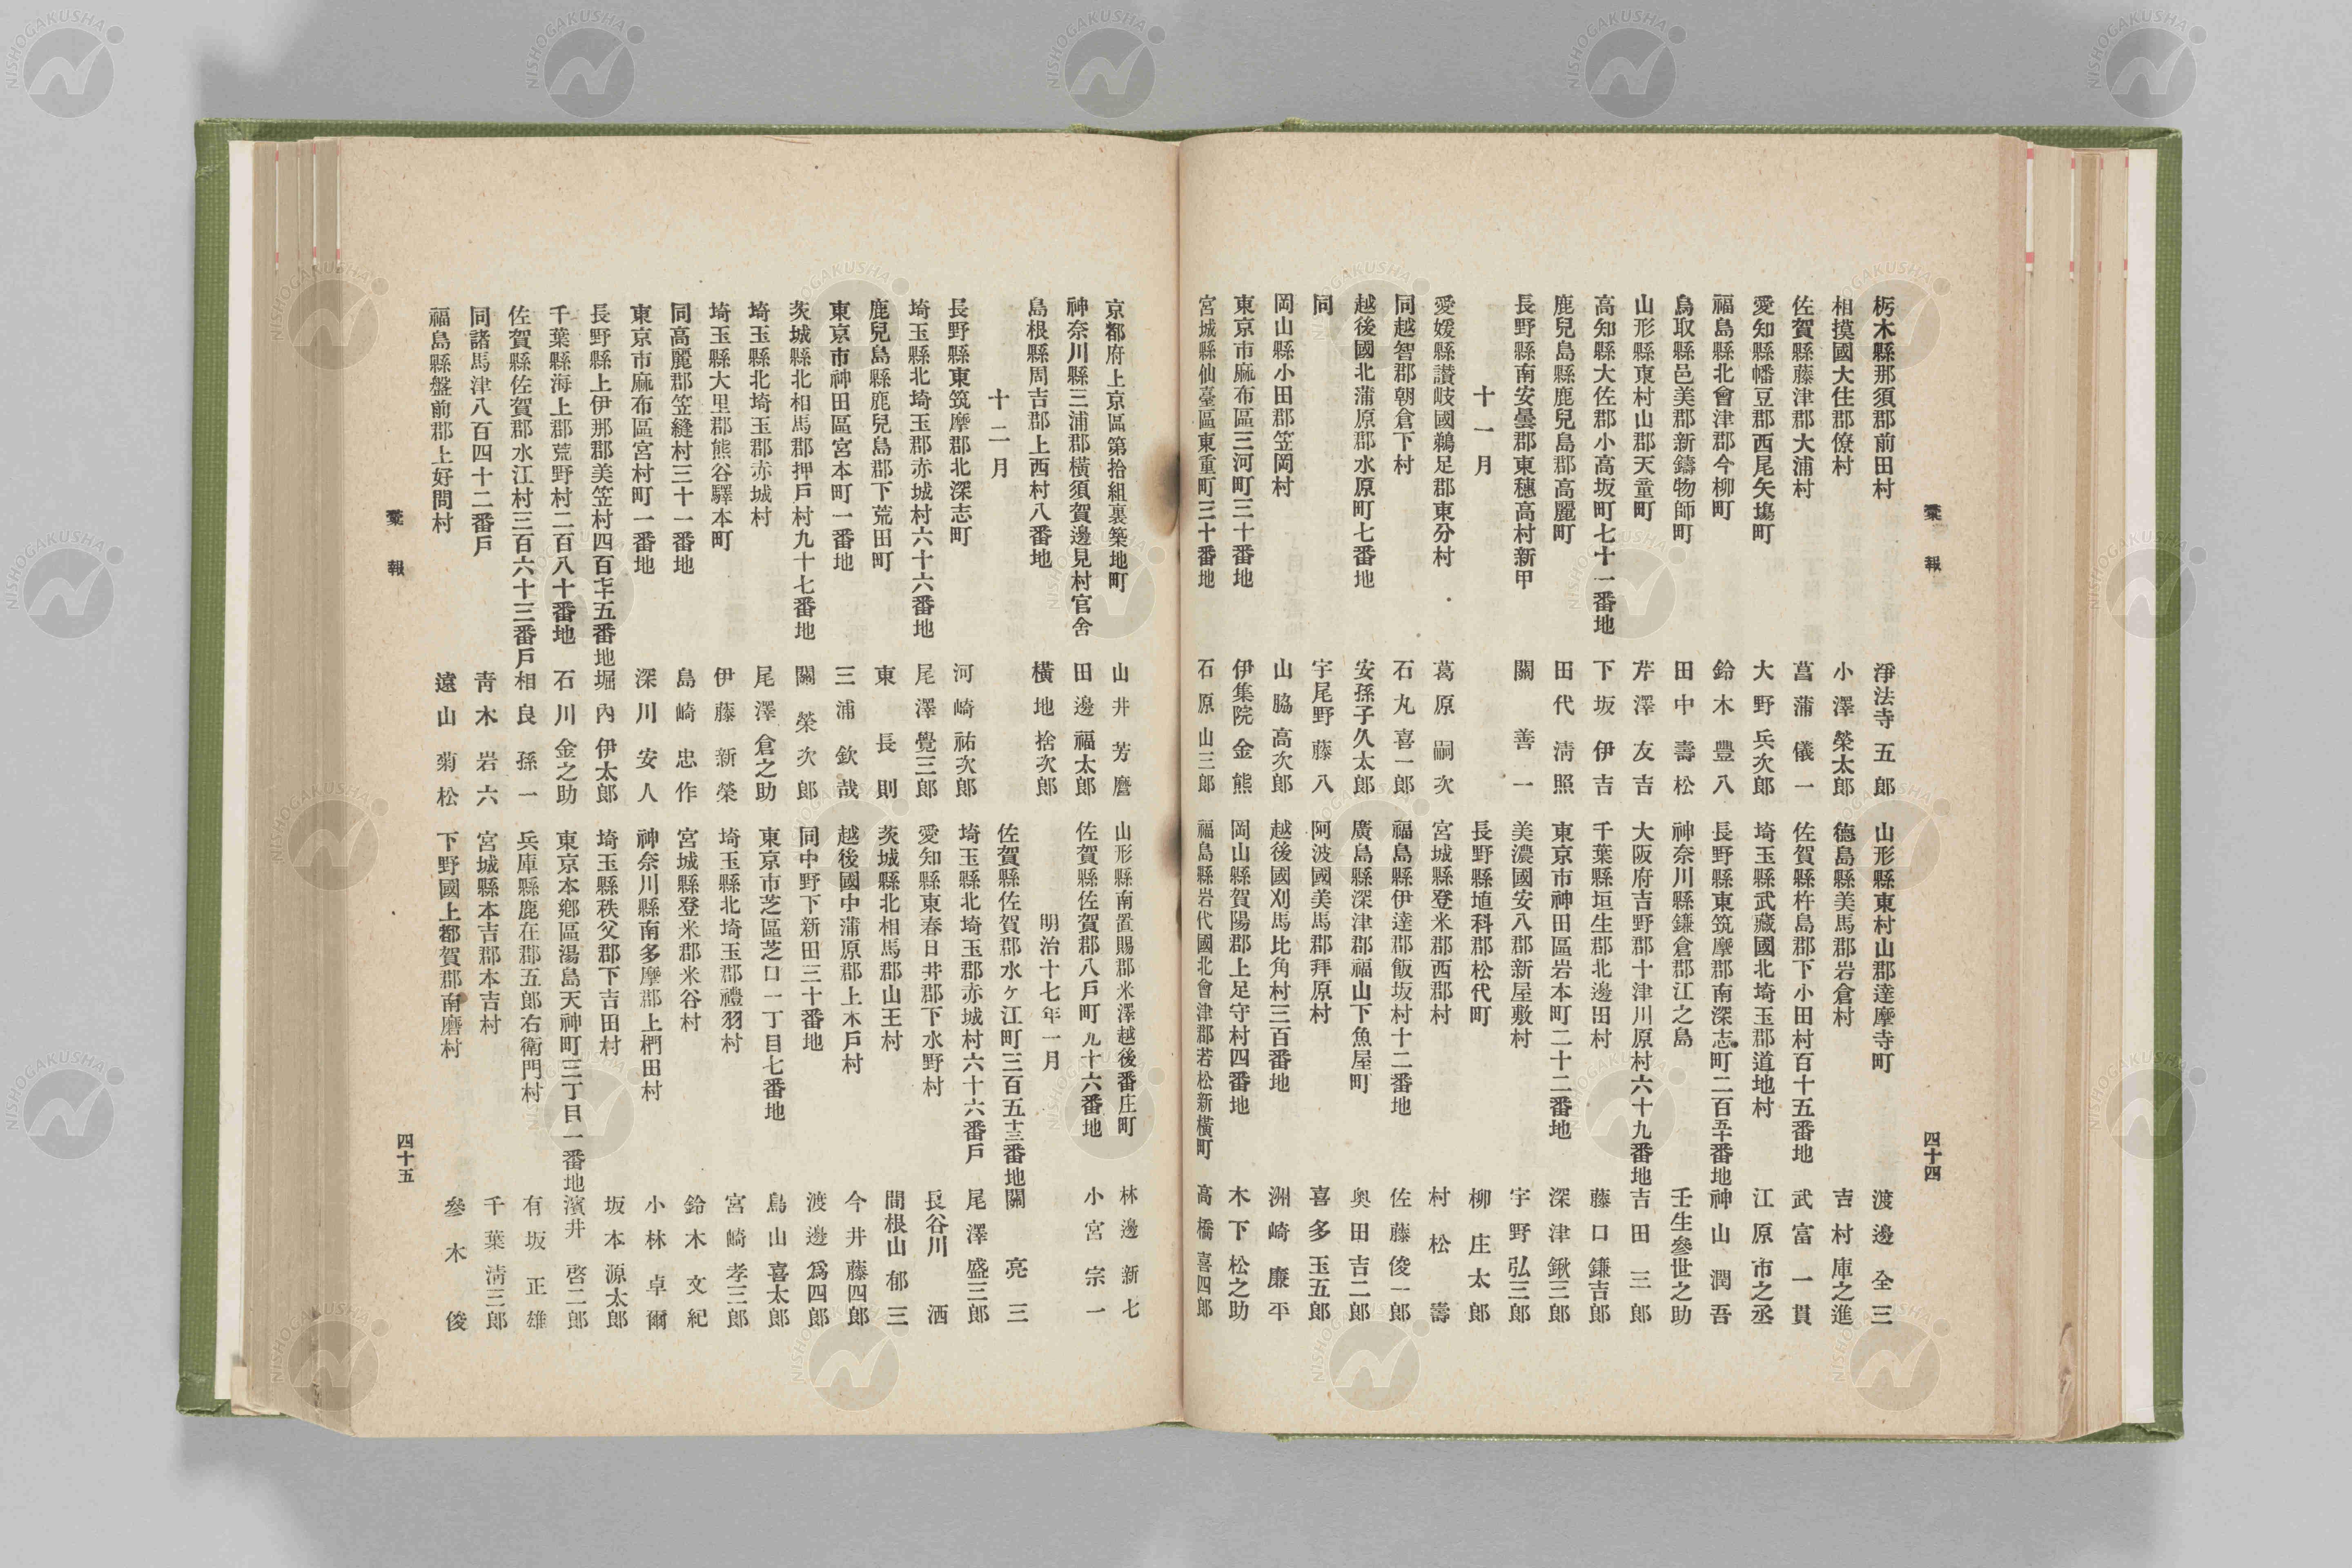 彙報
四十四
栃木縣那須郡前田村 淨法寺五郎
相摸國大住郡僚村 小澤榮太郎
佐賀縣藤津郡大浦村 菖蒲儀一
愛知縣幡豆郡西尾矢塲町 大野兵次郎
福島縣北會津郡今柳町 鈴木豐八
鳥取縣邑美郡新鑄物師町 田中壽松
山形縣東村山郡天童町 芹澤友吉
高知縣大佐郡小高坂町七十一番地 下坂伊吉
鹿兒島縣鹿兒島郡高麗町 田代淸照
長野縣南安曇郡東穗高村新甲 關善一
十一月
愛媛縣讃岐國鵜足郡東分村 葛原嗣次
同越智郡朝倉下村 石丸喜一郎
越後國北蒲原郡水原町七番地 安孫子久太郎
同 宇尾野藤八
岡山縣小田郡笠岡村 山脇高次郎
東京市麻布區三河町三十番地 伊集院金熊
宮城縣仙臺區東重町三十番地 石原山三郎
山形縣東村山郡達摩寺町 渡邊全三
德島縣美馬郡岩倉村 吉村庫之進
佐賀縣杵島郡下小田村百十五番地 武富一貫
埼玉縣武藏國北埼玉郡道地村 江原市之丞
長野縣東筑摩郡南深志町二百五十番地 神山潤吾
神奈川縣鎌倉郡江之島 壬生參世之助
大阪府吉野郡十津川原村六十九番地 吉田三郎
千葉縣垣生郡北邊田村 藤口鎌吉郎
東京市神田區岩本町二十二番地 深津鍬三郎
美濃國安八郡新屋敷村 宇野弘三郎
長野縣埴科郡松代町 柳庄太郎
宮城縣登米郡西郡村 村松壽
福島縣伊達郡飯坂村十二番地 佐藤俊一郎
廣島縣深津郡福山下魚屋町 奥田吉二郎
阿波國美馬郡拜原村 喜多玉五郎
越後國刈馬比角村三百番地 洲崎廉平
岡山縣賀陽郡上足守村四番地 木下松之助
福島縣岩代國北會津郡若松新橫町 高橋喜四郎
京都府上京區第拾組裏築地町 山井芳麿
神奈川縣三浦郡橫須賀邊見村官舍 田邊福太郎
島根縣周吉郡上西村八番地 橫地捨次郎
十二月
長野縣東筑摩郡北深志町 河崎祐次郎
埼玉縣北埼玉郡赤城村六十六番地 尾澤覺三郎
鹿兒島縣鹿兒島郡下荒田町 東長則
東京市神田區宮本町一番地 三浦欽哉
茨城縣北相馬郡押戸村九十七番地 關榮次郎
埼玉縣北埼玉郡赤城村 尾澤倉之助
埼玉縣大里郡熊谷驛本町 伊藤新榮
同高麗郡笠縫村三十一番地 島崎忠作
東京市麻布區宮村町一番地 深川安人
長野縣上伊那郡美笠村四百七十五番地 堀內伊太郎
千葉縣海上郡荒野村二百八十番地 石川金之助
佐賀縣佐賀郡水江村三百六十三番戸 相良孫一
同諸馬津八百四十二番戸 靑木岩六
福島縣盤前郡上好間村 遠山菊松
山形縣南置賜郡米澤越後番庄町 林邊新七
佐賀縣佐賀郡八戸町九十六番地 小宮宗一
明治十七年一月
佐賀縣佐賀郡水ヶ江町三百五十三番地 關亮三
埼玉縣北埼玉郡赤城村六十六番戸 尾澤盛三郎
愛知縣東春日井郡下水野村 長谷川洒
茨城縣北相馬郡山王村 間根山郁三
越後國中蒲原郡上木戸村 今井藤四郎
同中野下新田三十番地 渡邊爲四郎
東京市芝區芝口一丁目七番地 鳥山喜太郎
埼玉縣北埼玉郡禮羽村 宮崎孝三郎
宮城縣登米郡米谷村 鈴木文紀
神奈川縣南多摩郡上椚田村 小林卓爾
埼玉縣秩父郡下吉田村 坂本源太郎
東京本鄕區湯島天神町三丁目一番地 濱井啓二郎
兵庫縣鹿在郡五郎右衛門村 有坂正雄
宮城縣本吉郡本吉村 千葉淸三郎
下野國上都賀郡南磨村 參木俊
彙報
四十五